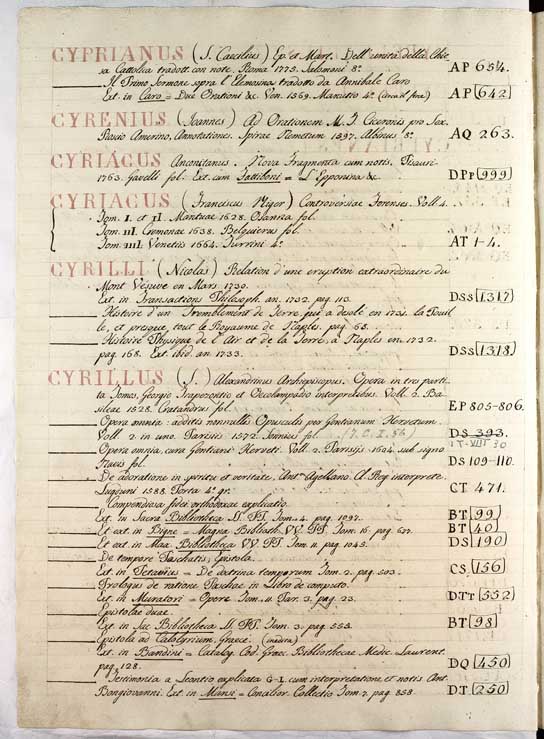 CYPRIANUS (S. Caecilius) Ep. et Mart. Dell'unità della Chie
sa Cattolica tradott. con note. Roma 1773. Salomoni 8.° AP 65¼.
Il Primo Sermone sopra l'Elemosina tradotto da Annibale Caro
Ext. in Caro = Due Orationi &c. Ven. 1569. Manutio 4.° (circa il fine) AP 642
CYRENIUS (Joannes) Ad Orationem M. T. Ciceronis pro Sex.
Roscio Amerino, Annotationes. Spirae Nemetum 1597. Albinus 8.° AQ 263.
CYRIACUS Anconitanus. Nova Fragmenta cum notis. Pisauri
1763. Gavelli fol. Ext. cum = L'Epponina &c. DPP 999
CYRIACUS (Franciscus Niger) Controversiae Forenses. Voll. 4.
Tom. I. et II. Mantuae 1628. Osanna fol.
Tom. III. Cremonae 1638. Belpierus fol.
Tom. IIII. Venetiis 1664. Turrini 4.° AT 1-4.
CYRILLI (Nicolas) Relation d'une eruption extraordinaire du
Mont Vesuve en Mars 1730.
Ext. in Transactions Philosoph. an. 1732. pag. 113. DSS 1317
Histoire d'un Tremblement de Terre, qui a desolé en 1731. la Pouil
le, et presque tout le Royaume de Naples. pag. 65.
Histoire Physique de l'Air et de la Terre, à Naples en 1732.
pag. 168. Ext. ibid. an. 1733. DSS 1318
CYRILLUS (S.) Alexandrinus Archiepiscopus. Opera in tres parti-
ta Tomos, Georgio Trapezontio et Oecolampadio interpretibus. Voll. 2. Ba
sileae 1528. Cratandrus fol. EP 805-806.
Opera omnia: additis nonnullis Opusculis per Gentianum Hervetum.
Voll. 2 in uno. Parisiis 1572. fol. 17. C. I. 56 DS 393.
17. VIII 30
Opera omnia, cura Gentiani Herveti. Voll. 2. Parisijs 1604. sub signo
Navis fol. DS 109-110.
De adoratione in spiritu et veritate. Ant.° Agellano. Cl. Reg. interprete.
Lugduni 1588. Porta 4.° gr. CT 471.
Compendiosa fidei orthodoxae explicatio.
Ext. in Sacra Bibliotheca SS. PP. Tom. 4. pag. 1097. BT 99
Et ext. in Bigne = Magna Biblioth. VV. PP. Tom. 16. pag. 627. BT 40
Et ext. in Max. Bibliotheca VV. PP. Tom. 11. pag. 1043. DS 190
De tempore Paschatis, Epistola.
Ext. in Petavius = De doctrina temporum Tom. 2. pag. 503. CS 156
Prologus de ratione Paschae, in Libro de computo.
Ext. in Muratori = Opere Tom. 11. Par. 3. pag. 23. DTT 552
Epistolae duae.
Ext. in Sac. Bibliotheca SS. PP. Tom. 3. pag. 553. BT 98
Epistola ad Calosyrium, Graecè. (inedita)
Ext. in Bandini = Catalog. Cod. Graec. Bibliothecae Medic. Laurent.
pag. 128. DQ 450
Testimonia a Leontio explicata G-L. cum interpretatione et notis Ant.
Bongiovanni. Ext. in Mansi = Concilior. Collectio Tom. 7. pag. 858. DT 250